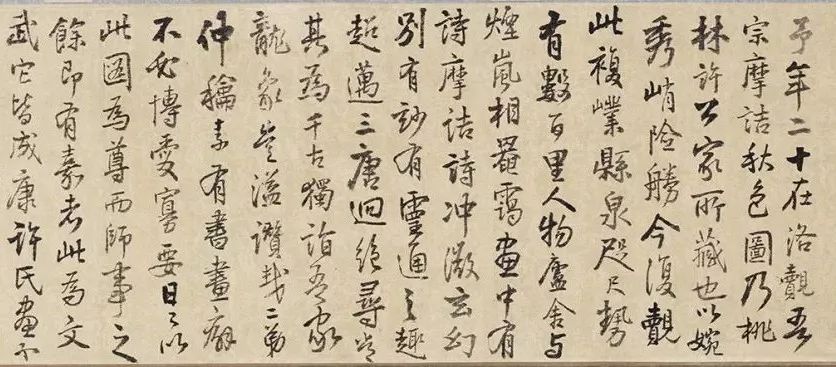 予年二十在洛觀吾
宗摩詰秋色圖乃桃
林許公家所藏也以婉
秀峭險勝今復覩
此複嶫縣泉咫尺勢
有數百里人物廬舍与
煙嵐相罨靄畫中有
詩摩詰詩冲澂玄幻
别有妙有靈通之趣
超邁三唐迴絶尋常
其為千古獨詣吾家
龍象豈溢讚哉二弟
仲穐素有書畫癖
不必博愛寡要日以
此圖為尊而師事之
餘即有嘉者此為文
武它皆成康許氏畫不